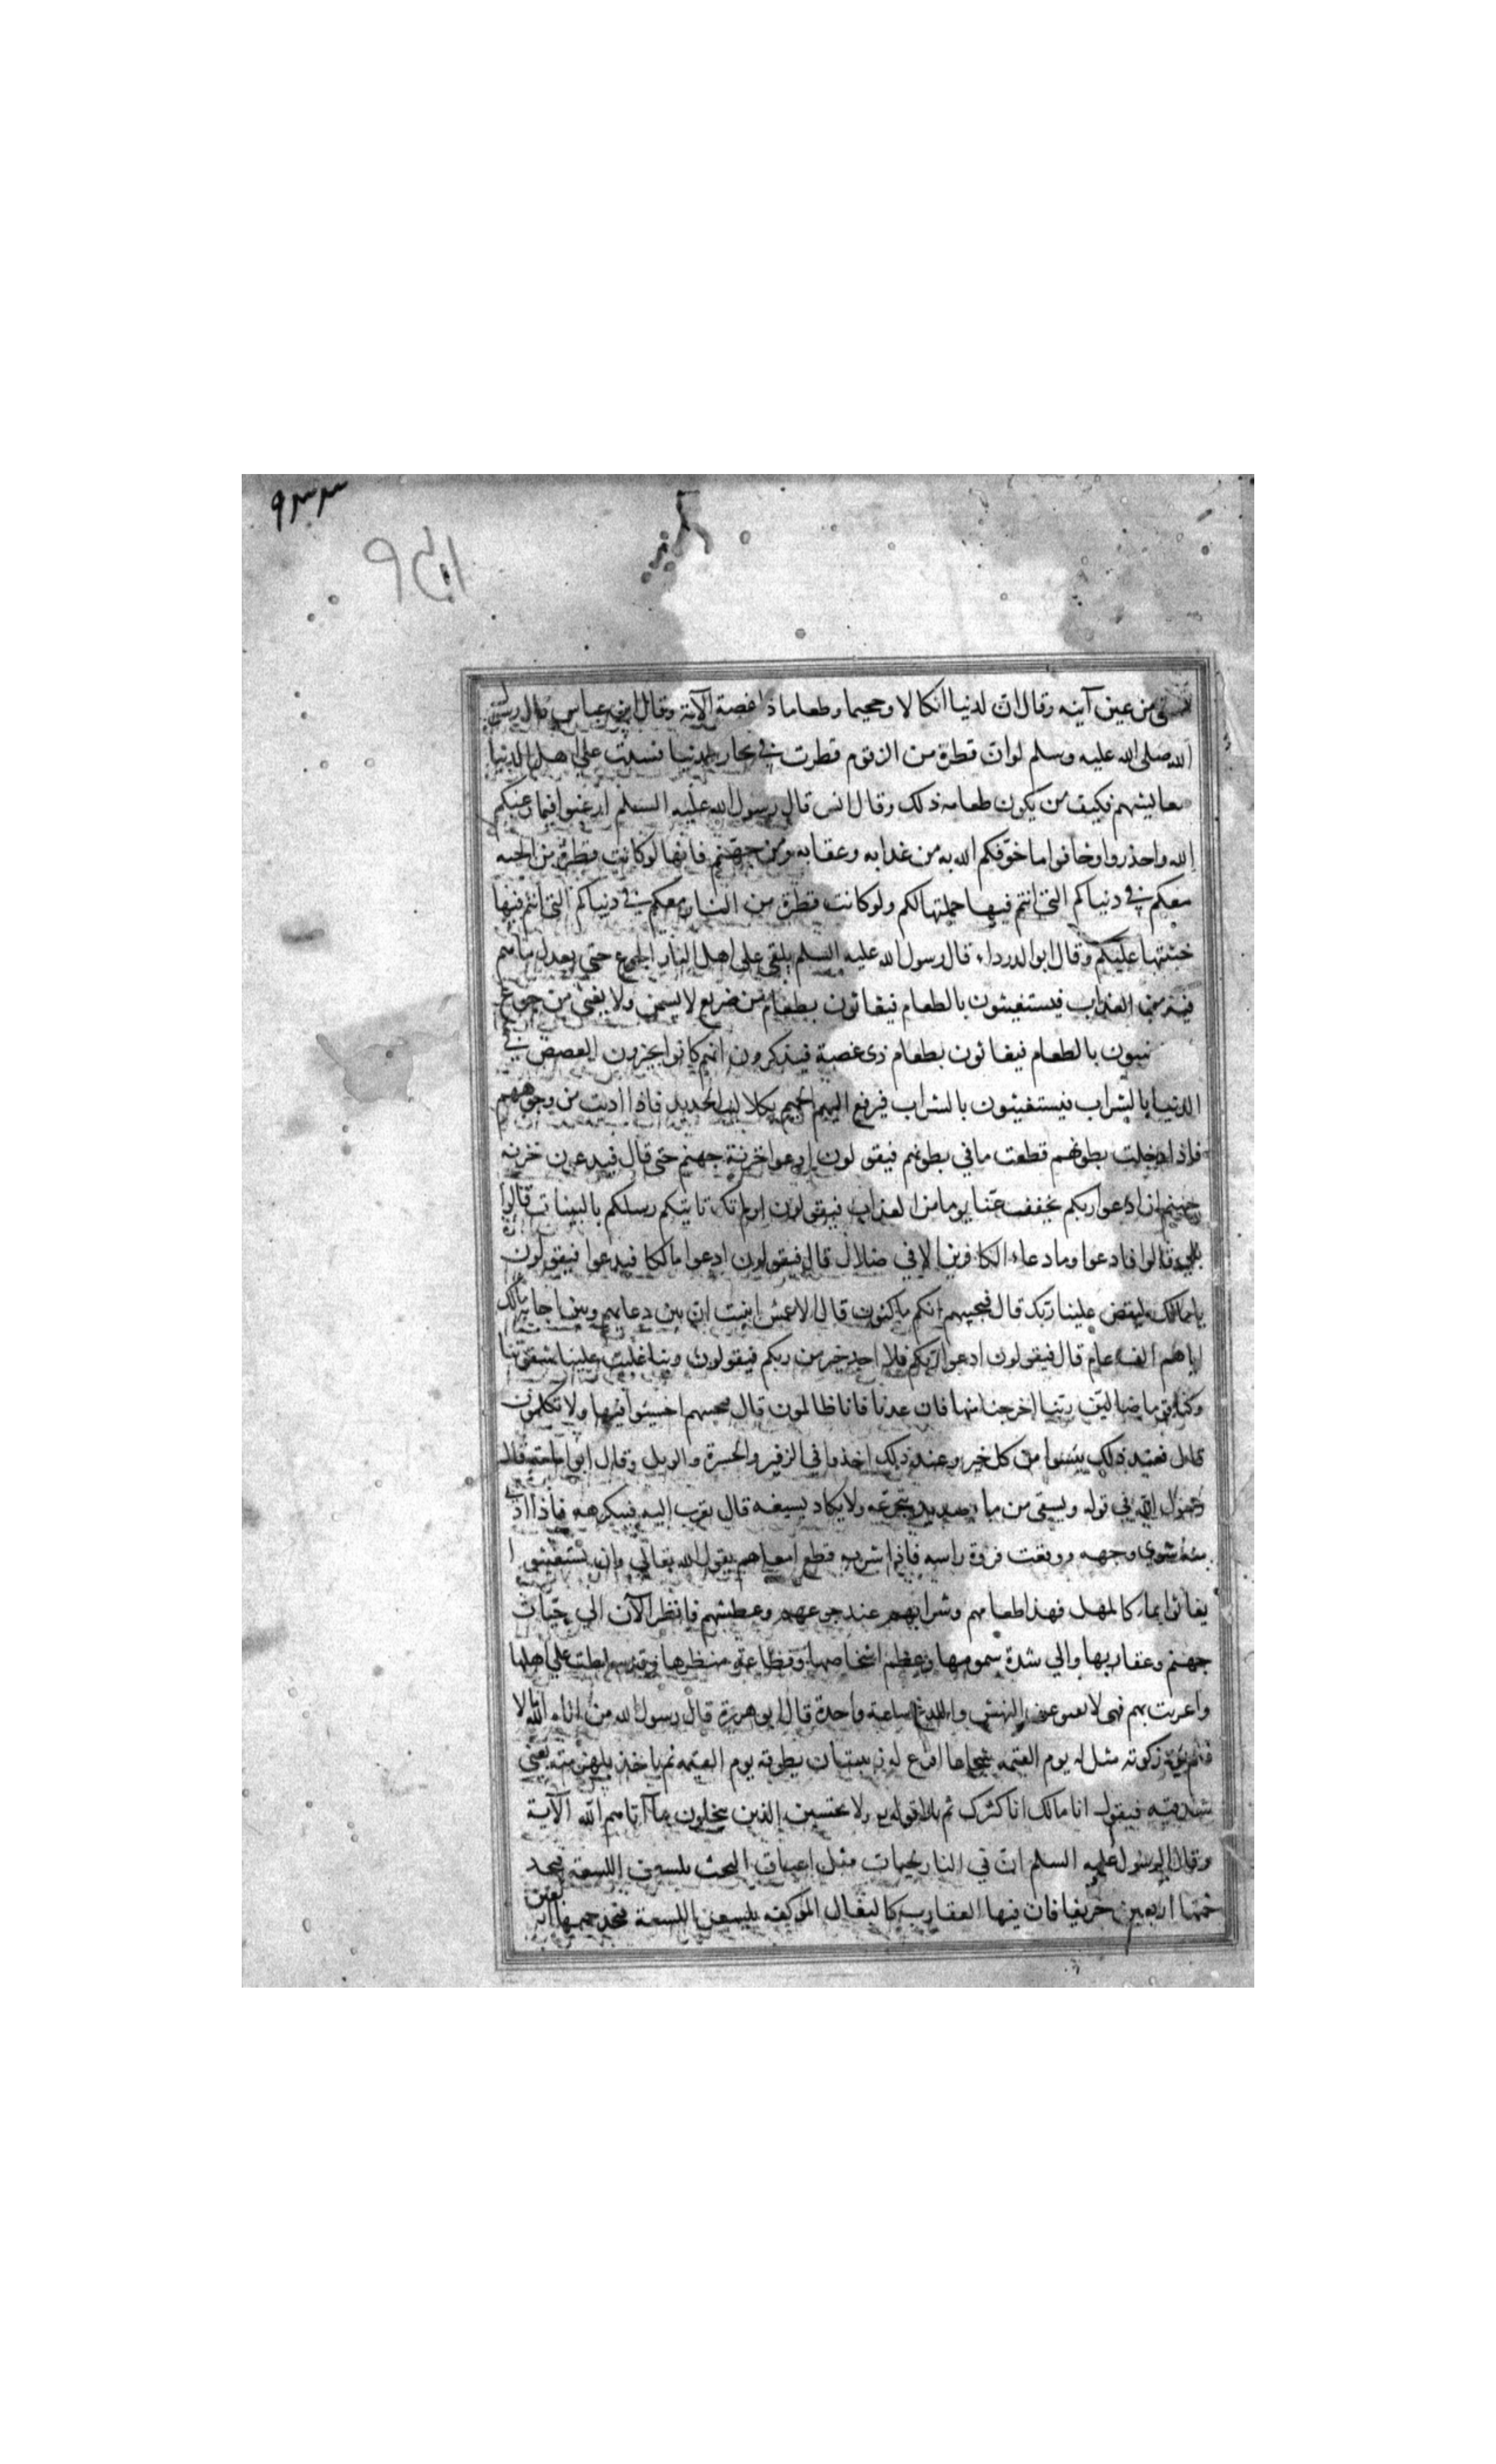 ۹۳۳
تسقى من عين آنيه وقال ان لدينا انكالا وجحيما وطعاما ذا غصة الآية وقال ابن عباس قال رسول
الله صلى الله عليه وسلم لو ان قطرة من الزقوم قطرت في بحار الدنيا فسدت على اهل الدنيا
معايشهم فكيف من يكون طعامه ذلك وقال انس قال رسول الله عليه السلم ارغبوا فيما رغبكم
الله واحذروا وخافوا ما خوفكم الله به من عذابه وعقابه ومن جهنم فانها لو كانت قطرة من الجنه
معكم في دنياكم التي انتم فيها حملتها لكم ولو كانت قطرة من النار معكم في دنياكم التي انتم فيها
خبثتها عليكم وقال ابو الدرداء قال رسول الله عليه السلم يلقى على اهل النار الجوع حتى يعدل ما هم
فيه من العذاب فيستغيثون بالطعام فيغاثون بطعام من ضريع لا يسمن ولا يغني من جوع
بالطعام فيغاثون بطعام ذى غصة فيذكرون انهم كانوا يجزون الغصص في
الدنيا بالشراب فيستغيثون بالشراب فيرفع اليهم الحميم بكلاليب الحديد فاذا ادنت من وجوههم
فاذا دخلت بطونهم قطعت ما في بطونهم فيقولون ادعوا خزنة جهنم حتى قال فيدعون خزنه
جهنم ان ادعوا ربكم يخفف عنا يوما من العذاب فيقولون اولم تك تاتيكم رسلكم بالبينات قالوا
بلى قالوا فادعوا وما دعاء الكافرين الا في ضلال قال فيقولون ادعوا مالكا فيدعوا فيقولون
يا مالك ليقض علينا ربك قال فيجيبهم انكم ماكثون قال الاعمش انبئت ان بين دعائهم وبين اجابة مالك
اياهم الف عام قال فيقولون ادعوا ربكم فلا احد خير من ربكم فيقولون ربنا غلبت علينا شقوتنا
وكنا قوما ضالين ربنا اخرجنا منها فان عدنا فانا ظالمون قال فيجيبهم اخسئوا فيها ولا تكلمون
قال فعند ذلك يئسوا من كل خير وعند ذلك اخذوا في الزفير والحسرة والويل وقال ابو امامة قال
رسول الله في قوله ويسقى من ماء صديد يتجرعه ولا يكاد يسيغه قال يقرب اليه فيكرهه فاذا ادنى
منه شوى وجهه ووقعت فروة راسه فاذا شربه قطع امعاءهم يقول الله تعالى وان يستغيثوا
يغاثوا بماء كالمهل فهذا طعامهم وشرابهم عند جوعهم وعطشهم فانظر الآن الى حيات
جهنم وعقاربها والى شدة سمومها وعظم اشخاصها وفظاعة منظرها وقد سلطت على اهلها
واغريت بهم فهي لا عن النهش واللدغ ساعة واحدة قال ابو هريرة قال رسول الله من اتاه الله مالا
فلم يؤد زكوته مثل له يوم القيمه شجاعا اقرع له زبيبتان يطوقه يوم القيمه ثم ياخذ بلهزمتيه يعني
شدقيه فيقول انا مالك انا كنزك ثم تلا قوله ولا يحسبن الذين يبخلون بما آتاهم الله الآية
وقال الرسول عليه السلم ان في النار لحيات مثل اعناق البخت يلسعن اللسعة فيجد
حمتها اربعين خريفا فان فيها العقارب كالبغال الموكفه يلسعن اللسعة فيجد حمتها اربعين